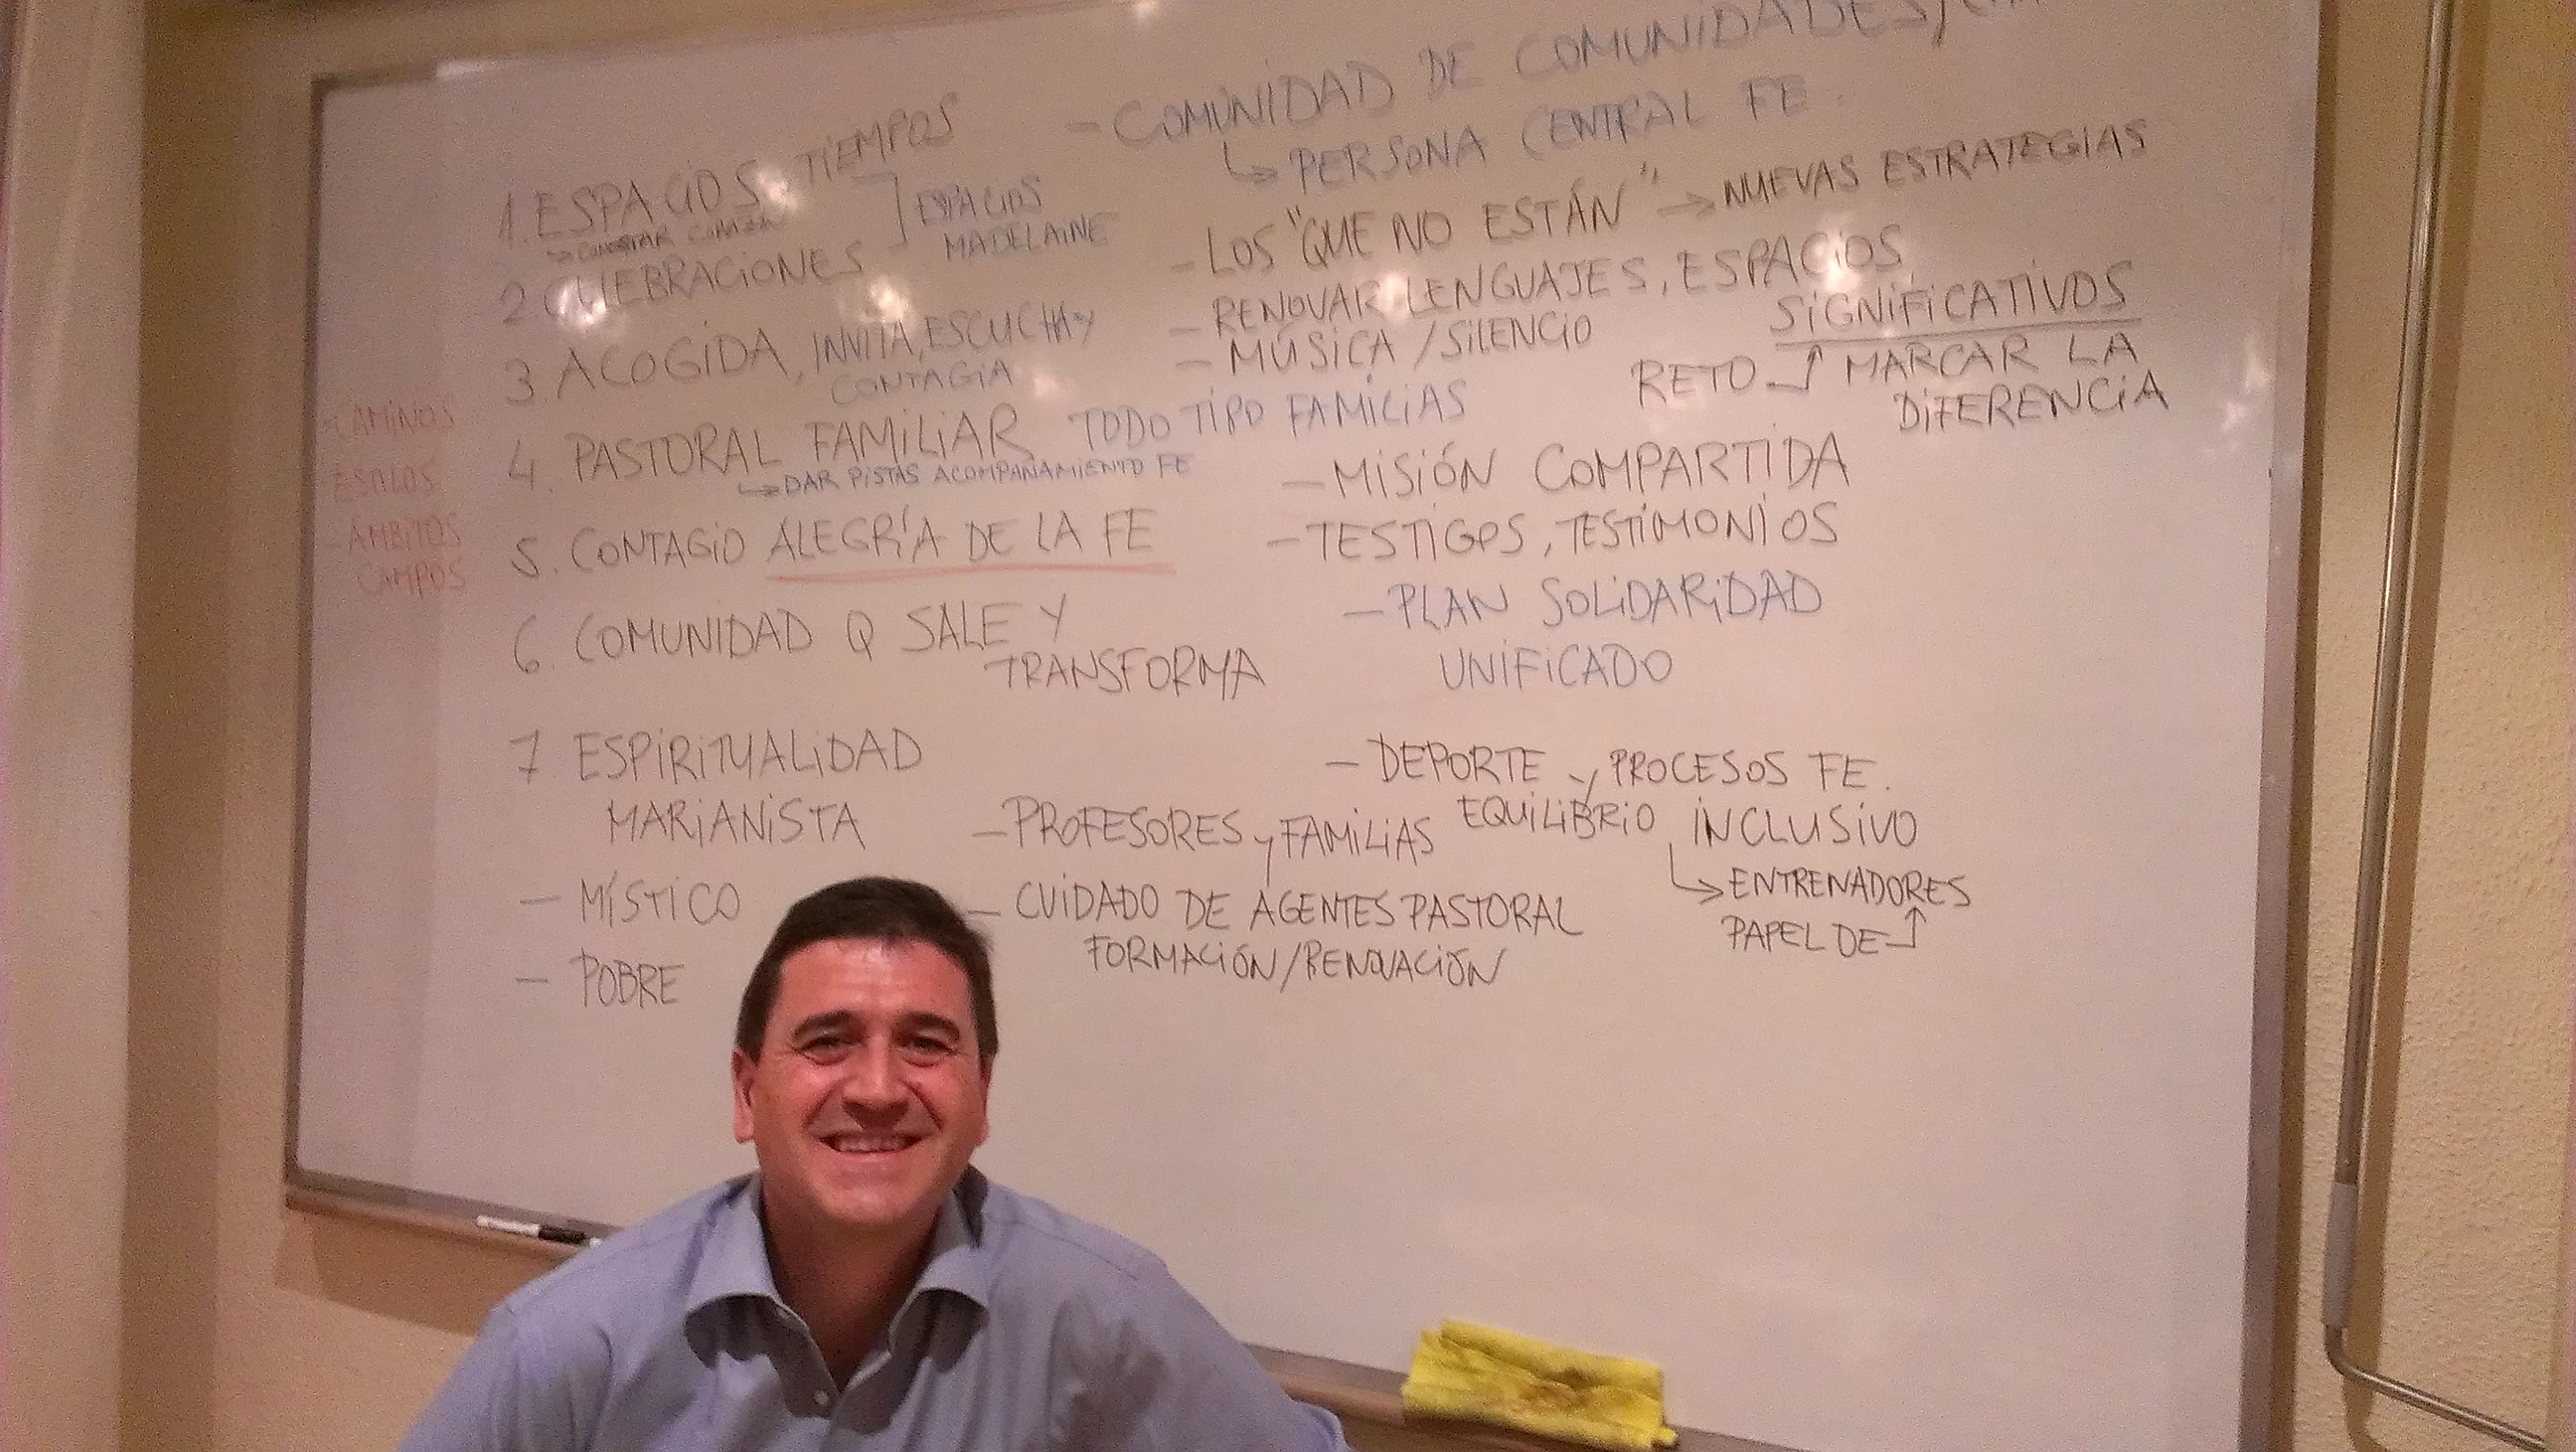 1. ESPACIOS, TIEMPOS
] ESPACIOS
MADELAINE
2 CELEBRACIONES
3 ACOGIDA, INVITA, ESCUCHA Y
CONTAGIA
4. PASTORAL FAMILIAR TODO TIPO FAMILIAS
↳ DAR PISTAS ACOMPAÑAMIENTO FE
5. CONTAGIO ALEGRÍA DE LA FE
6. COMUNIDAD Q SALE Y
TRANSFORMA
7 ESPIRITUALIDAD
MARIANISTA
— MÍSTICO
— POBRE
- CAMINOS
- ESTILOS
- ÁMBITOS
CAMPOS
- COMUNIDAD DE COMUNIDADES/
↳ PERSONA CENTRAL FE.
- LOS "QUE NO ESTÁN" → NUEVAS ESTRATEGIAS
- RENOVAR LENGUAJES, ESPACIOS,
SIGNIFICATIVOS
- MÚSICA / SILENCIO
RETO ↑ MARCAR LA
DIFERENCIA
- MISIÓN COMPARTIDA
- TESTIGOS, TESTIMONIOS
- PLAN SOLIDARIDAD
UNIFICADO
- DEPORTE Y PROCESOS FE.
EQUILIBRIO INCLUSIVO
↳ ENTRENADORES
PAPEL DE ↑
- PROFESORES y FAMILIAS
- CUIDADO DE AGENTES PASTORAL
FORMACIÓN/RENOVACIÓN